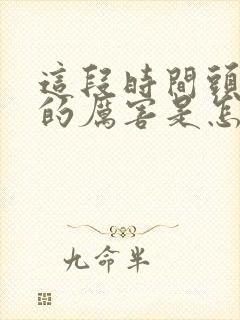 這段時間頭
的厲害是怎
九命半